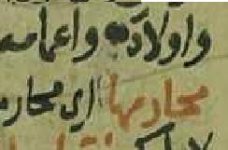 واولاده واعمامه
محارمها اي محارم